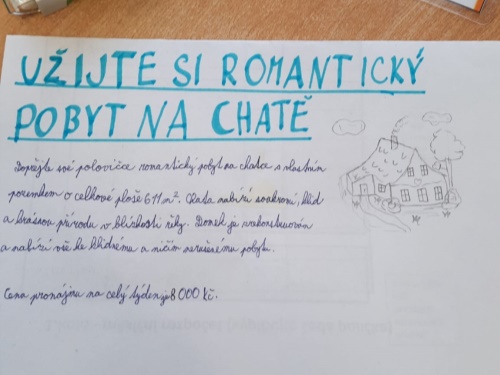 UŽIJTE SI ROMANTICKÝ
POBYT NA CHATĚ
Dopřejte své polovičce romantický pobyt na chatce s vlastním
pozemkem o celkové ploše 611 m². Chata nabízí soukromí, klid
a krásnou přírodu v blízkosti řeky. Domek je zrekonstruován
a nabízí vše ke klidnému a ničím nerušenému pobytu.
Cena pronájmu na celý týden je 8 000 Kč.